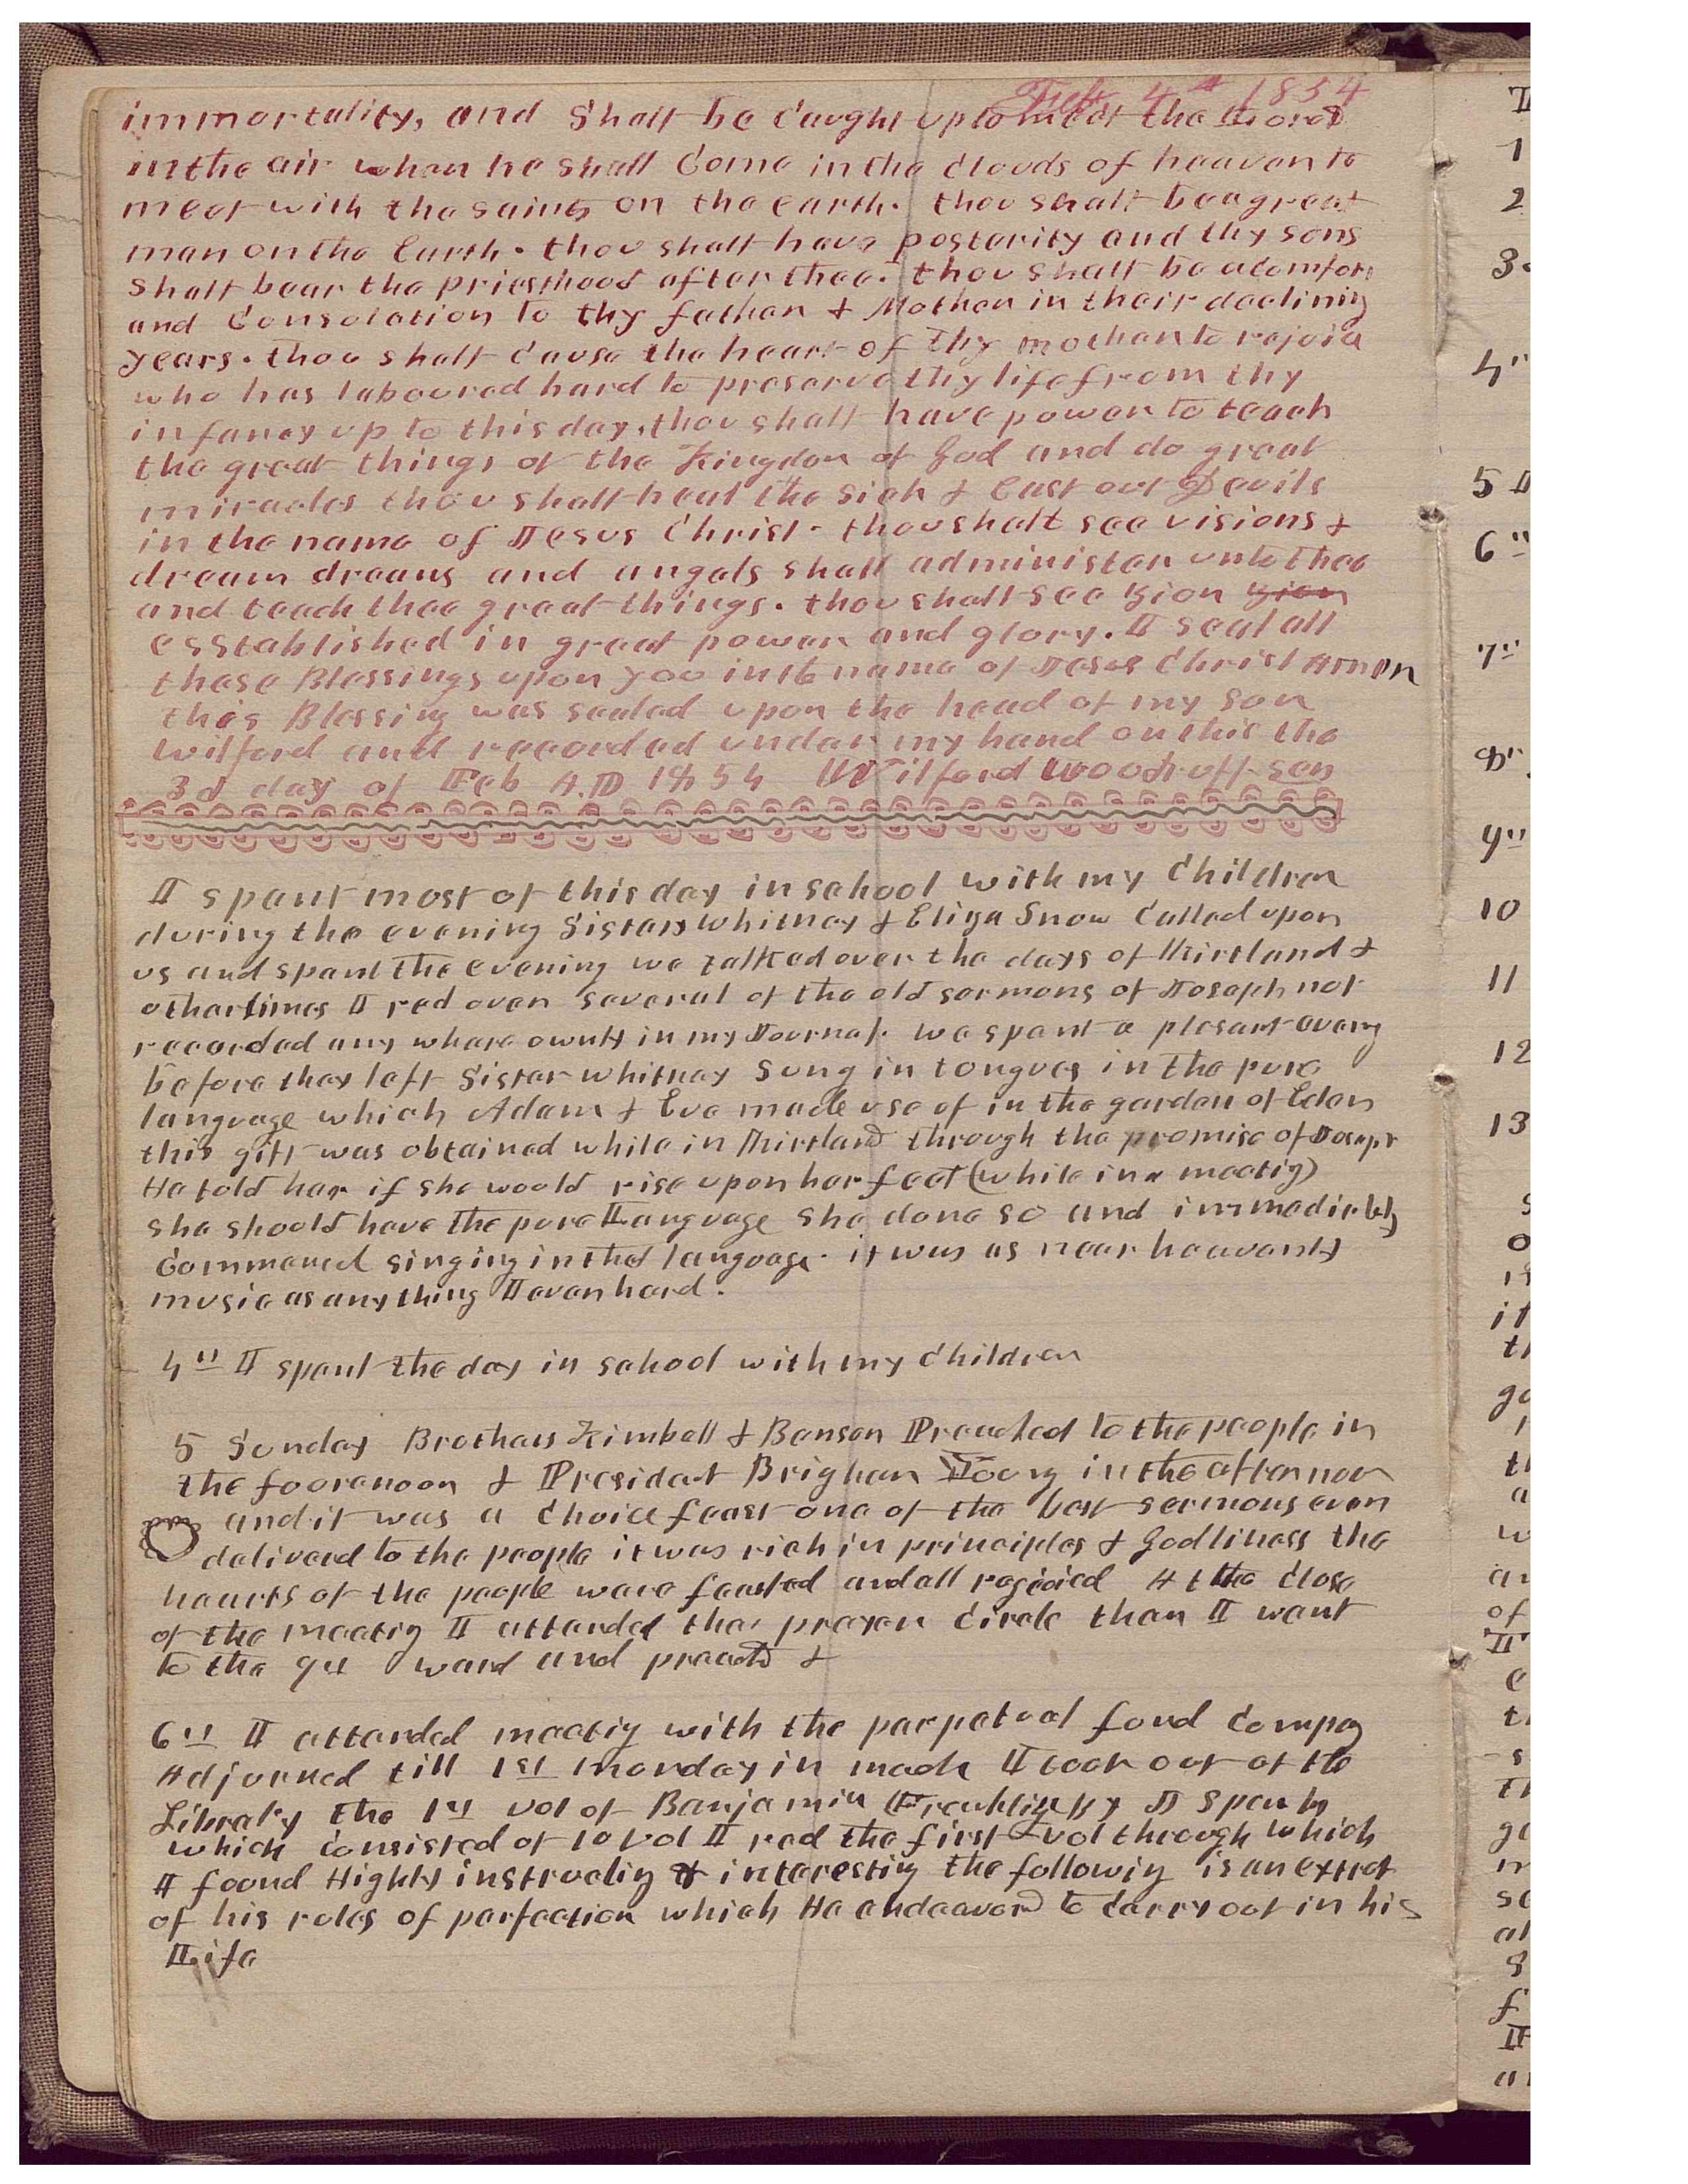 Feb 4th 1854
immortality, and shall be Caught up to meet the Lord
in the air when he shall Come in the Clouds of heaven to
meet with the saints on the earth. thou shalt be a great
man on the Earth. thou shalt have posterity and thy sons
shall bear the priesthood after thee. thou shalt be a comfort
and Consolation to thy father & Mother in their declining
years. thou shalt Cause the heart of thy mother to rejoice
who has laboured hard to preserve thy life from thy
infancy up to this day, thou shalt have power to teach
the great things of the Kingdom of God and do great
miracles thou shalt heal the sick & Cast out Devils
in the name of Jesus Christ. thou shalt see visions &
dream dreams and angels shall administer unto thee
and teach thee great things. thou shalt see Zion Zion
esstablished in great power and glory. I seal all
these Blessings upon you in the name of Jesus Christ Amen
this Blessing was sealed upon the head of my son
Wilford and recorded under my hand on this the
3d day of Feb A.D 1854 Wilford Woodruff sen
I spent most of this day in school with my Children
during the evening Sisters Whitney & Eliza Snow Called upon
us and spent the evening we talked over the days of Kirtland &
other times I red over several of the old sermons of Joseph not
recorded any whare ownly in my Journal. we spent a plesant eveny
before they left Sister Whitney Sung in tongues in the pure
language which Adam & Eve made use of in the garden of Eden
this gift was obtained while in Kirtland through the promise of Joseph
He told her if she would rise upon her feet (while in a meetig)
she should have the pure Language she done so and immediately
Commened singing in that language. it was as near heavenly
music as any thing I ever herd.
4th I spent the day in school with my Children
5 Sunday Brothers Kimball & Benson Preached to the people in
the foorenoon & President Brigham Young in the afternoon
and it was a Choice feast one of the best sermons ever
deliverd to the people it was rich in principles & Godliness the
hearts of the people were feasted and all rejoiced At the Close
of the meetig I attended the prayer Circle then I went
to the 9th ward and preachd &
6th I attended meetig with the perpetual fond Compay
Adjorned till 1st monday in mach I took out of the
Libraly the 1st vol of Benjamin Franklin by J Sparks
which Consisted of 10 vol I red the first vol through which
I found Highly instructig & interestig the followig is an extrct
of his roles of perfection which He endeavord to Carry out in his
Life
I
1
2
3
4"
5
6"
7"
8"
9"
10
11
12
13